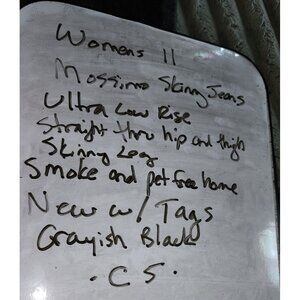 Womens 11
Mossimo Skinny Jeans
Ultra Low Rise
Straight thru hip and thigh
Skinny Leg
Smoke and pet free home
New w/ Tags
Grayish Black
. C S .